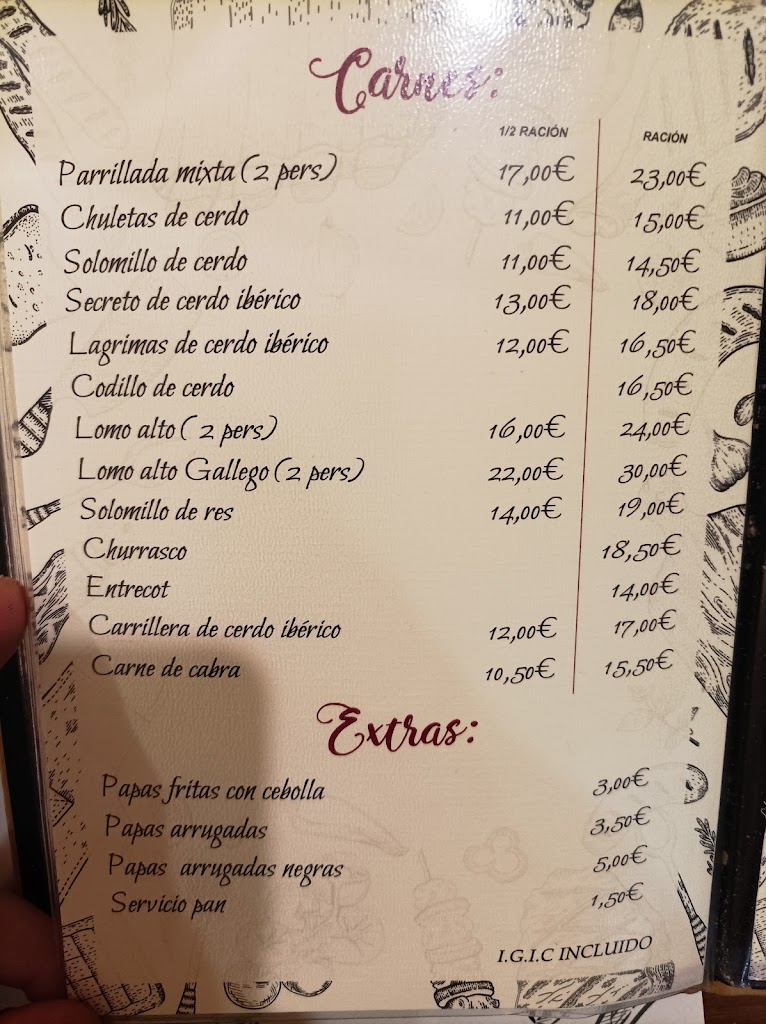 Carnes:
1/2 RACIÓN RACIÓN
Parrillada mixta (2 pers) 17,00€ 23,00€
Chuletas de cerdo 11,00€ 15,00€
Solomillo de cerdo 11,00€ 14,50€
Secreto de cerdo ibérico 13,00€ 18,00€
Lagrimas de cerdo ibérico 12,00€ 16,50€
Codillo de cerdo 16,50€
Lomo alto ( 2 pers) 16,00€ 24,00€
Lomo alto Gallego (2 pers) 22,00€ 30,00€
Solomillo de res 14,00€ 19,00€
Churrasco 18,50€
Entrecot 14,00€
Carrillera de cerdo ibérico 12,00€ 17,00€
Carne de cabra 10,50€ 15,50€
Extras:
Papas fritas con cebolla 3,00€
Papas arrugadas 3,50€
Papas arrugadas negras 5,00€
Servicio pan 1,50€
I.G.I.C INCLUIDO